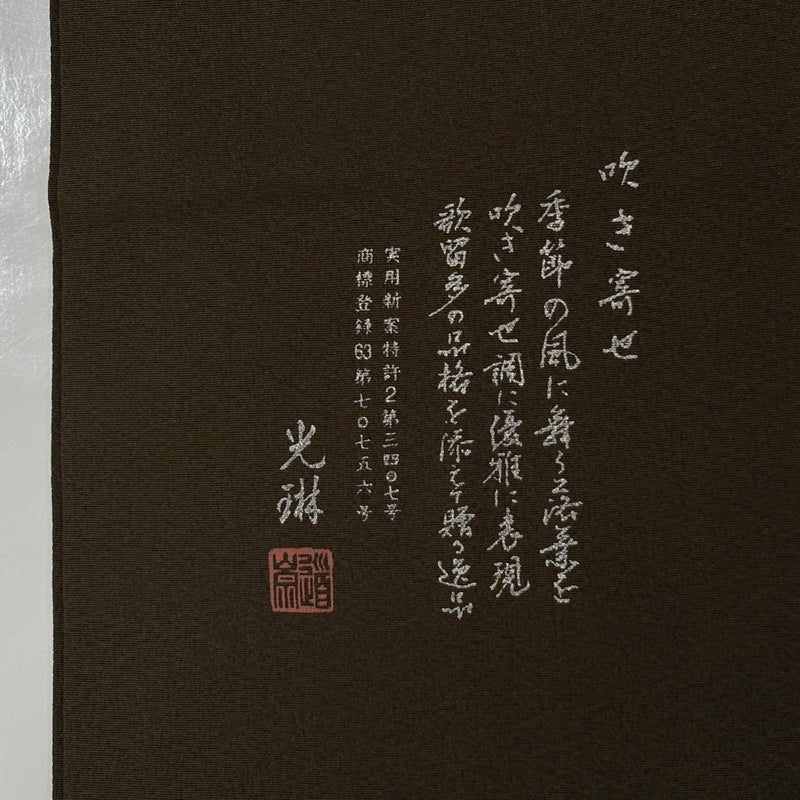 吹き寄せ
季節の風に舞う落葉を
吹き寄せ調に優雅に表現
歌留多の品格を添えて贈る逸品
実用新案特許2第三四〇七号
商標登録63第七〇七五六号
光琳
道崇